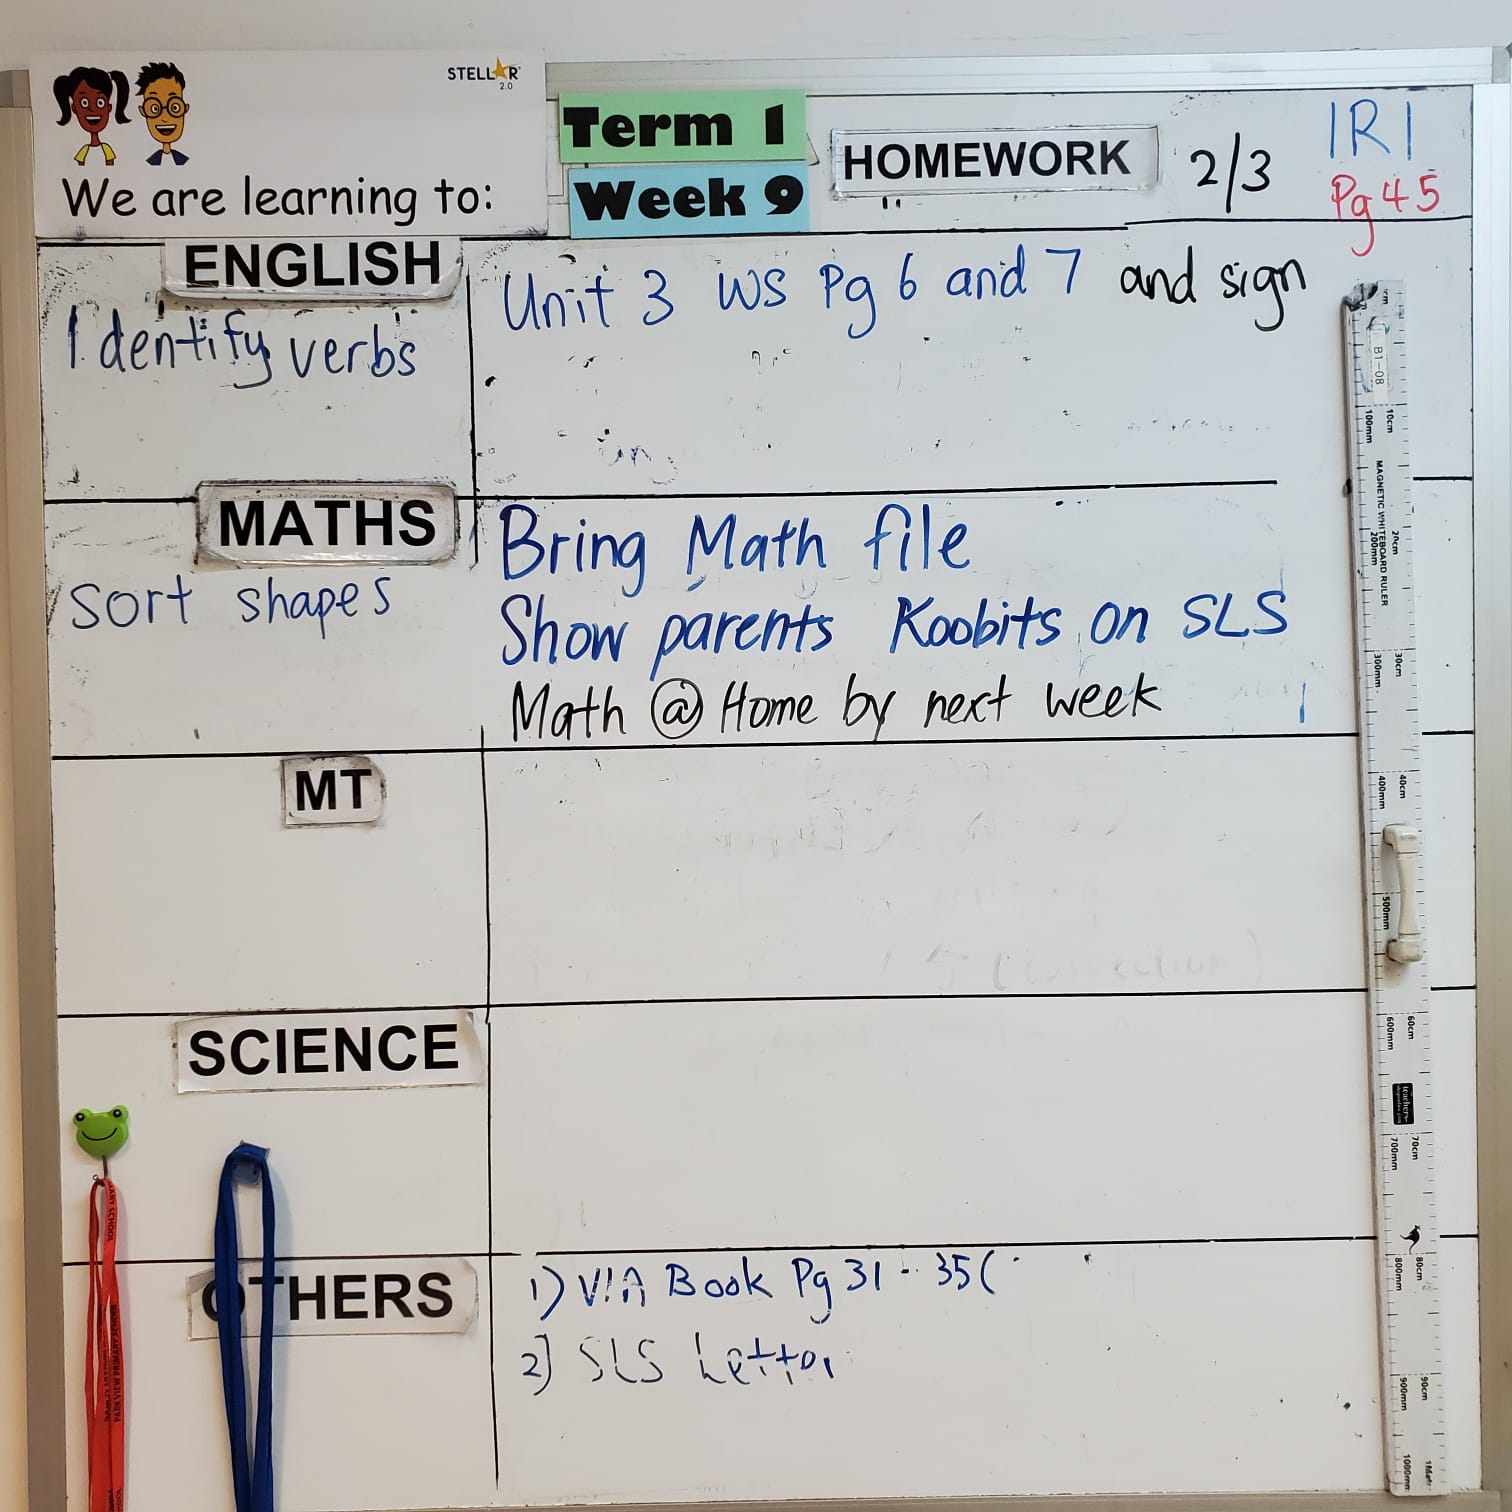 STELLAR
2.0
We are learning to:
Term 1
Week 9
HOMEWORK
2/3
1R1
Pg 45
ENGLISH
Identify verbs
Unit 3 WS Pg 6 and 7 and sign
MATHS
Sort shapes
Bring Math file
Show parents Koobits on SLS
Math @ Home by next week
MT
SCIENCE
OTHERS
1) VIA Book Pg 31 - 35 (
2) SLS Letter
B1-08
MAGNETIC WHITEBOARD RULER
10cm
100mm
20cm
200mm
30cm
300mm
40cm
400mm
500mm
60cm
600mm
teachers
70cm
700mm
80cm
800mm
90cm
900mm
1000mm
PARK VIEW PRIMARY SCHOOL